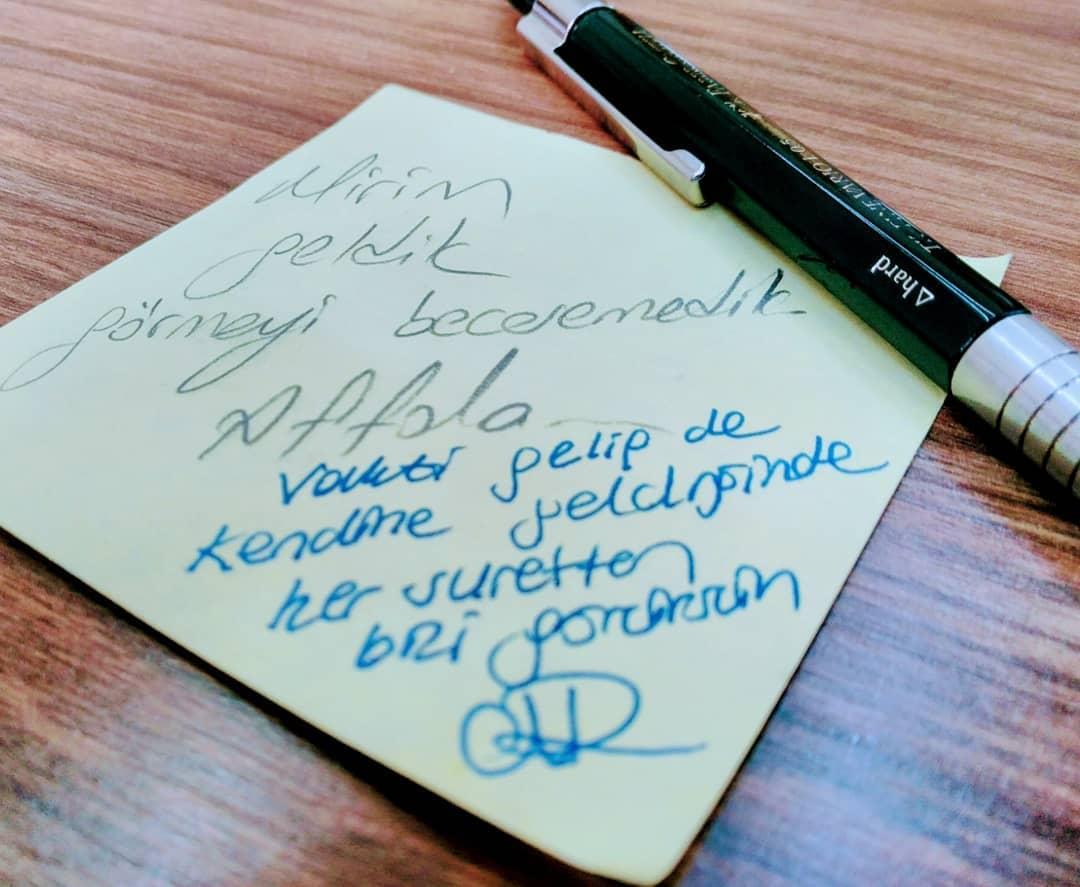 Mirim
geldik
görmeyi beceremedik
Affola
vakti gelip de
kendine geldiğinde
her suretten
bizi görürsün
Δhard